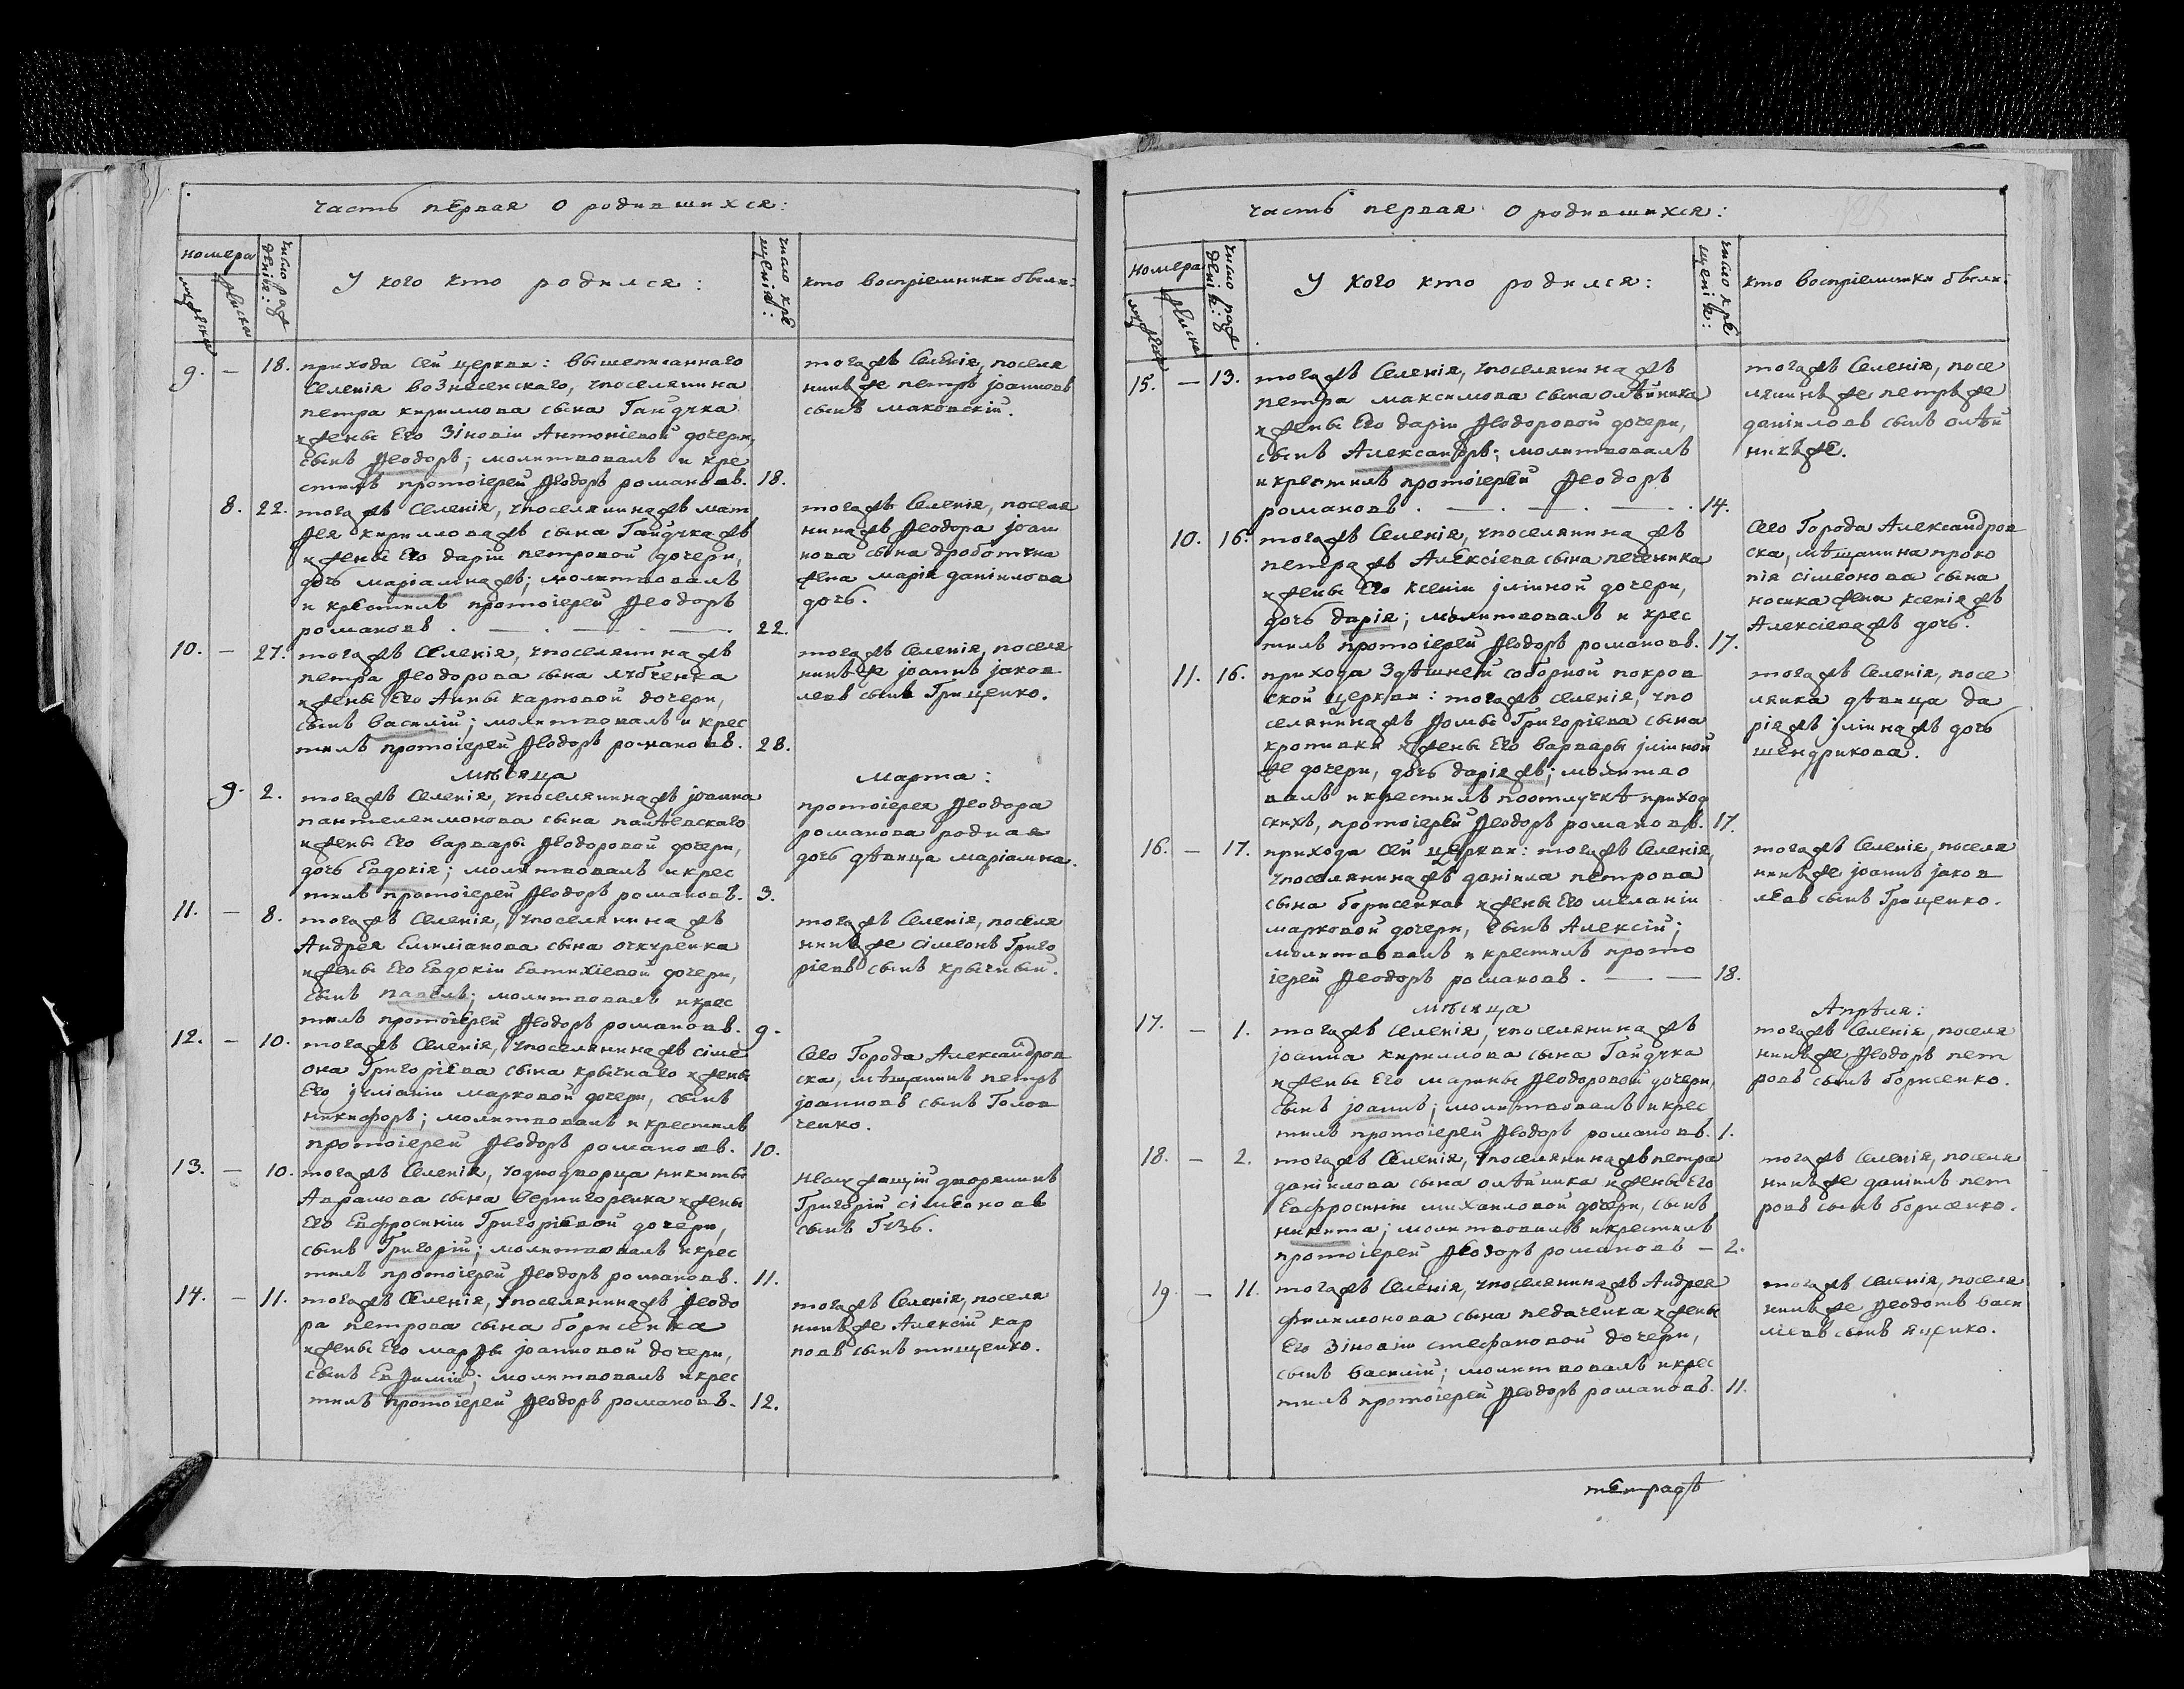 часть первая о родившихся:
номера
мужеска
женска
число рож
денія:
У кого кто родился:
число кре
щенія:
кто воспріемники были:
9. — 18. прихода сей церкви: вышеписаннаго
селенія вознесенскаго, упоселянина
петра кириллова сына Гайдука
ижены Его Зіновіи Антоніевой дочери,
сынъ Ѳеодоръ; молитвовалъ и кре
стилъ протоіерей Ѳеодоръ романовъ. 18.
тогожъ Селенія, поселя
нинъже петръ іоанновъ
сынъ маковскій.
8. 22. тогожъ Селенія, упоселянинажъ мат
ѳея кирилловажъ сына Гайдукажъ
ижены Его даріи петровой дочери,
дочь маріамнажъ; молитвовалъ
и крестилъ протоіерей Ѳеодоръ
романовъ. — . — . — 22.
тогожъ Селенія, поселя
нинажъ Ѳеодора іоан
нова сына дроботуна
жена марія даніилова
дочь.
10. — 27. тогожъ Селенія, упоселянинажъ
петра Ѳеодорова сына лубченка
ижены Его Анны карповой дочери,
сынъ василій; молитвовалъ и крес
тилъ протоіерей Ѳеодоръ романовъ. 28.
тогожъ Селенія, поселя
нинъже іоаннъ іаков
левъ сынъ Грищенко.
мѣсяца
марта:
9. 2. тогожъ Селенія, упоселянинажъ іоанна
пантелеимонова сына
ижены Его варвары Ѳеодоровой дочери,
дочь Евдокія; молитвовалъ икрес
тилъ протоіерей Ѳеодоръ романовъ. 3.
протоіерея Ѳеодора
романова родная
дочь дѣвица маріамна.
11. — 8. тогожъ Селенія, упоселянинажъ
Андрея Емиліанова сына очкуренка
ижены Его Евдокіи Евтихіевой дочери,
сынъ павелъ; молитвовалъ икрес
тилъ протоіерей Ѳеодоръ романовъ. 9.
тогожъ Селенія, поселя
нинъже сімеонъ Григо
ріевъ сынъ крычный.
12. — 10. тогожъ Селенія, упоселянинажъ сіме
она Григоріева сына крычнаго ижены
Его іуліаніи марковой дочери, сынъ
никифоръ; молитвовалъ и крестилъ
протоіерей Ѳеодоръ романовъ. 10.
Сего Города Александров
ска, мѣщанинъ петръ
іоанновъ сынъ Голов
ченко.
13. — 10. тогожъ Селенія, уоднодворца никиты
Аврамова сына вернигоренка ижены
Его Евфросиніи Григоріевой дочери,
сынъ Григорій; молитвовалъ икрес
тилъ протоіерей Ѳеодоръ романовъ. 11.
неслужащій дворянинъ
Григорій сімеоновъ
сынъ Гузь.
14. — 11. тогожъ Селенія, упоселянинажъ Ѳеодо
ра петрова сына борисенка
ижены Его марѳы іоанновой дочери,
сынъ Евѳимій; молитвовалъ икрес
тилъ протоіерей Ѳеодоръ романовъ. 12.
тогожъ Селенія, поселя
нинъже Алексій кар
повъ сынъ тищенко.
часть первая о родившихся:
номера
мужеска
женска
число рож
денія:
У кого кто родился:
число кре
щенія:
кто воспріемники были:
15. — 13. тогожъ Селенія, упоселянинажъ
петра максимова сына олѣйника
ижены Его даріи Ѳеодоровой дочери,
сынъ Александръ; молитвовалъ
и крестилъ протоіерей Ѳеодоръ
романовъ. — . — . — . 14.
тогожъ Селенія, посе
лянинъже петръже
даніиловъ сынъ олѣй
никъже.
10. 16. тогожъ Селенія, упоселянинажъ
петражъ Алексіева сына печеника
ижены Его ксеніи іліиной дочери,
дочь дарія; молитвовалъ и крес
тилъ протоіерей Ѳеодоръ романовъ. 17.
Сего Города Александров
ска, мѣщанина проко
пія сімеонова сына
носика жена ксеніяжъ
Алексіеважъ дочь.
11. 16. прихода здѣшней соборной покров
ской церкви: тогожъ селенія, упо
селянинажъ Ѳомы Григоріева сына
кропивки ижены Его варвары іліиной
же дочери, дочь даріяжъ; молитво
валъ икрестилъ поотлучкѣ приход
скихъ, протоіерей Ѳеодоръ романовъ. 17.
тогожъ Селенія, посе
лянка дѣвица да
ріяжъ іліинажъ дочь
шендрикова.
16. — 17. прихода сей церкви: тогожъ Селенія,
упоселянинажъ даніила петрова
сына борисенка ижены Его меланіи
марковой дочери, сынъ Алексій;
молитвовалъ и крестилъ прото
іерей Ѳеодоръ романовъ. — — 18.
тогожъ Селенія, поселя
нинъже іоаннъ іаков
левъ сынъ Грищенко.
мѣсяца
Апрѣля:
17. — 1. тогожъ Селенія, упоселянинажъ
іоанна кириллова сына Гайдука
ижены Его марины Ѳеодоровой дочери,
сынъ іоаннъ; молитвовалъ икрес
тилъ протоіерей Ѳеодоръ романовъ. 1.
тогожъ Селенія, поселя
нинъже Ѳеодоръ пет
ровъ сынъ борисенко.
18. — 2. тогожъ Селенія, упоселянинажъ петра
даніилова сына олѣйника ижены Его
Евфросиніи михаиловой дочери, сынъ
никита; молитвовалъ икрестилъ
протоіерей Ѳеодоръ романовъ — 2.
тогожъ Селенія, поселя
нинъже даніилъ пет
ровъ сынъ борисенко.
19. — 11. тогожъ Селенія, упоселянинажъ Андрея
филимонова сына педаченка ижены
Его Зіновіи стефановой дочери,
сынъ василій; молитвовалъ икрес
тилъ протоіерей Ѳеодоръ романовъ. 11.
тогожъ Селенія, поселя
нинъже Ѳеодотъ васи
ліевъ сынъ яценко.
тетрадь